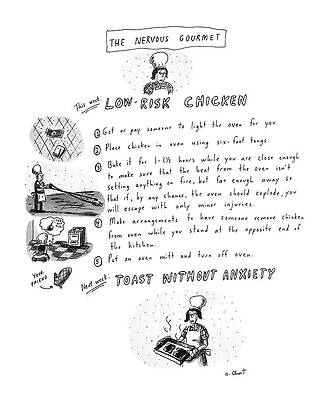 THE NERVOUS GOURMET
This week:
LOW-RISK CHICKEN
1 Get or pay someone to light the oven for you.
2 Place chicken in oven using six-foot tongs.
3 Bake it for 1-1½ hours while you are close enough
to make sure that the heat from the oven isn't
setting anything on fire, but far enough away so
that if, by any chance, the oven should explode, you
will escape with only minor injuries.
4 Make arrangements to have someone remove chicken
from oven while you stand at the opposite end of
the kitchen.
5 Put on oven mitt and turn off oven.
YOUR
FRIEND
Next week:
TOAST WITHOUT ANXIETY
R. Chast